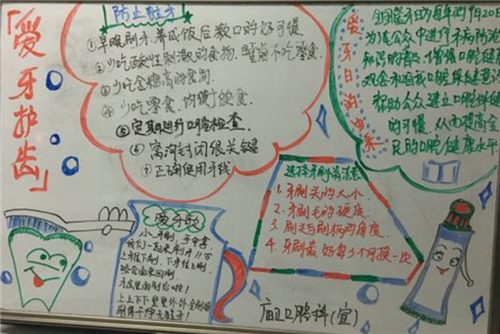 「爱牙护齿」
防止蛀牙
①早晚刷牙.养成饭后漱口的好习惯
②少吃酸性刺激的食物.睡前不吃零食.
③少吃含糖高的食物.
④少吃零食.均衡饮食.
⑤定期进行口腔检查.
⑥窝沟封闭很关键
⑦正确使用牙线
爱牙日的由来
全国爱牙日为每年9月20
为 公众中进行 病防治
知识的 增强口腔健康
观念和自我口腔保健意
有助公众建立口腔保健
的习惯.从而提高全
民的口腔健康水平
选择牙刷需注意
1.牙刷头的大小.
2.牙刷毛的硬度.
3.刷毛与刷柄的角度.
4.牙刷最好每3个月换一次
刷牙歌
小牙刷.手中拿
我们一起来刷牙
上牙往下刷.下牙往上刷
咬合面来回刷.
牙齿里面刷后
上上下下里里外外全刷
刷得干净
口腔科(宣)